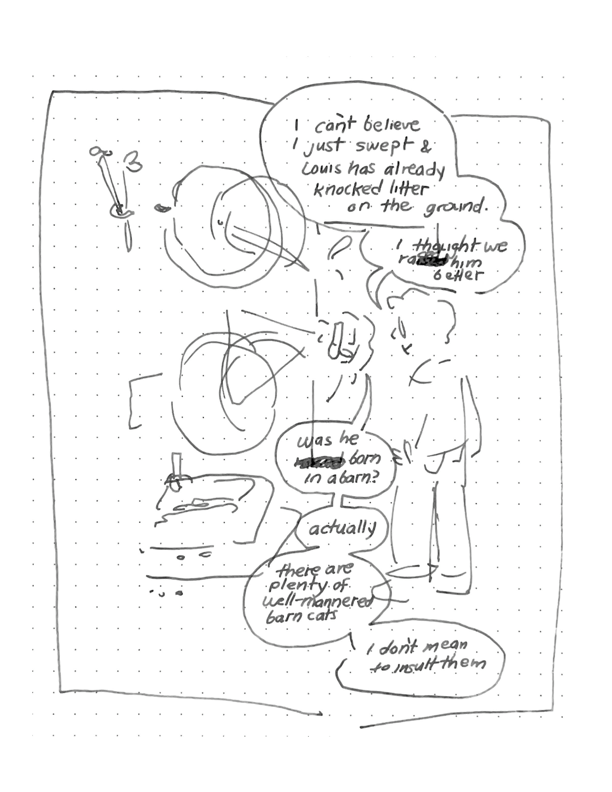 I can't believe
I just swept &
Louis has already
knocked litter
on the ground.
I thought we
raised him
better
was he
born
in a barn?
actually
there are
plenty of
well-mannered
barn cats
I don't mean
to insult them